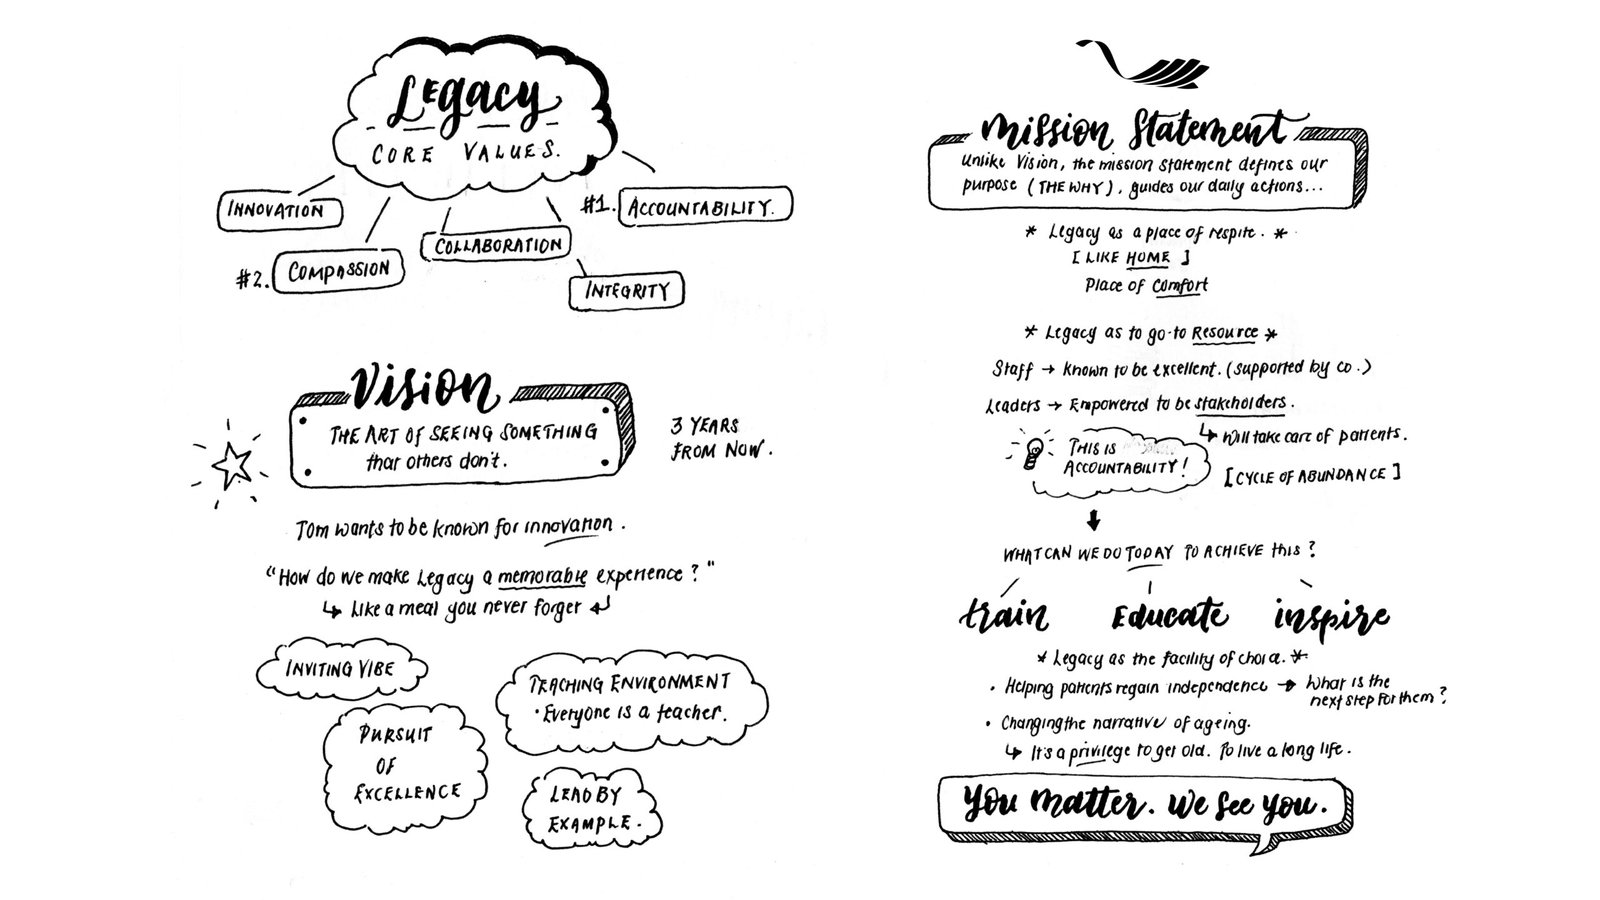 Legacy
CORE VALUES.
INNOVATION
#2. COMPASSION
COLLABORATION
#1. ACCOUNTABILITY.
INTEGRITY
Vision
THE ART OF SEEING SOMETHING
that others don't.
3 YEARS
FROM NOW.
Tom wants to be known for innovation.
"How do we make Legacy a memorable experience?"
↳ Like a meal you never forget ↲
INVITING VIBE
PURSUIT
OF
EXCELLENCE
TEACHING ENVIRONMENT
• Everyone is a teacher.
LEAD BY
EXAMPLE.
Mission Statement
Unlike Vision, the mission statement defines our
purpose (THE WHY), guides our daily actions...
* Legacy as a place of respite. *
[LIKE HOME]
Place of Comfort
* Legacy as to go-to Resource *
Staff → Known to be excellent. (supported by co.)
Leaders → Empowered to be stakeholders.
↳ Will take care of patients.
THIS IS
ACCOUNTABILITY!
[CYCLE OF ABUNDANCE]
WHAT CAN WE DO TODAY TO ACHIEVE this?
train Educate inspire
* Legacy as the facility of choice. *
• Helping patients regain independence → What is the
next step for them?
• Changing the narrative of ageing.
↳ It's a privilege to get old. To live a long life.
You matter. We see you.